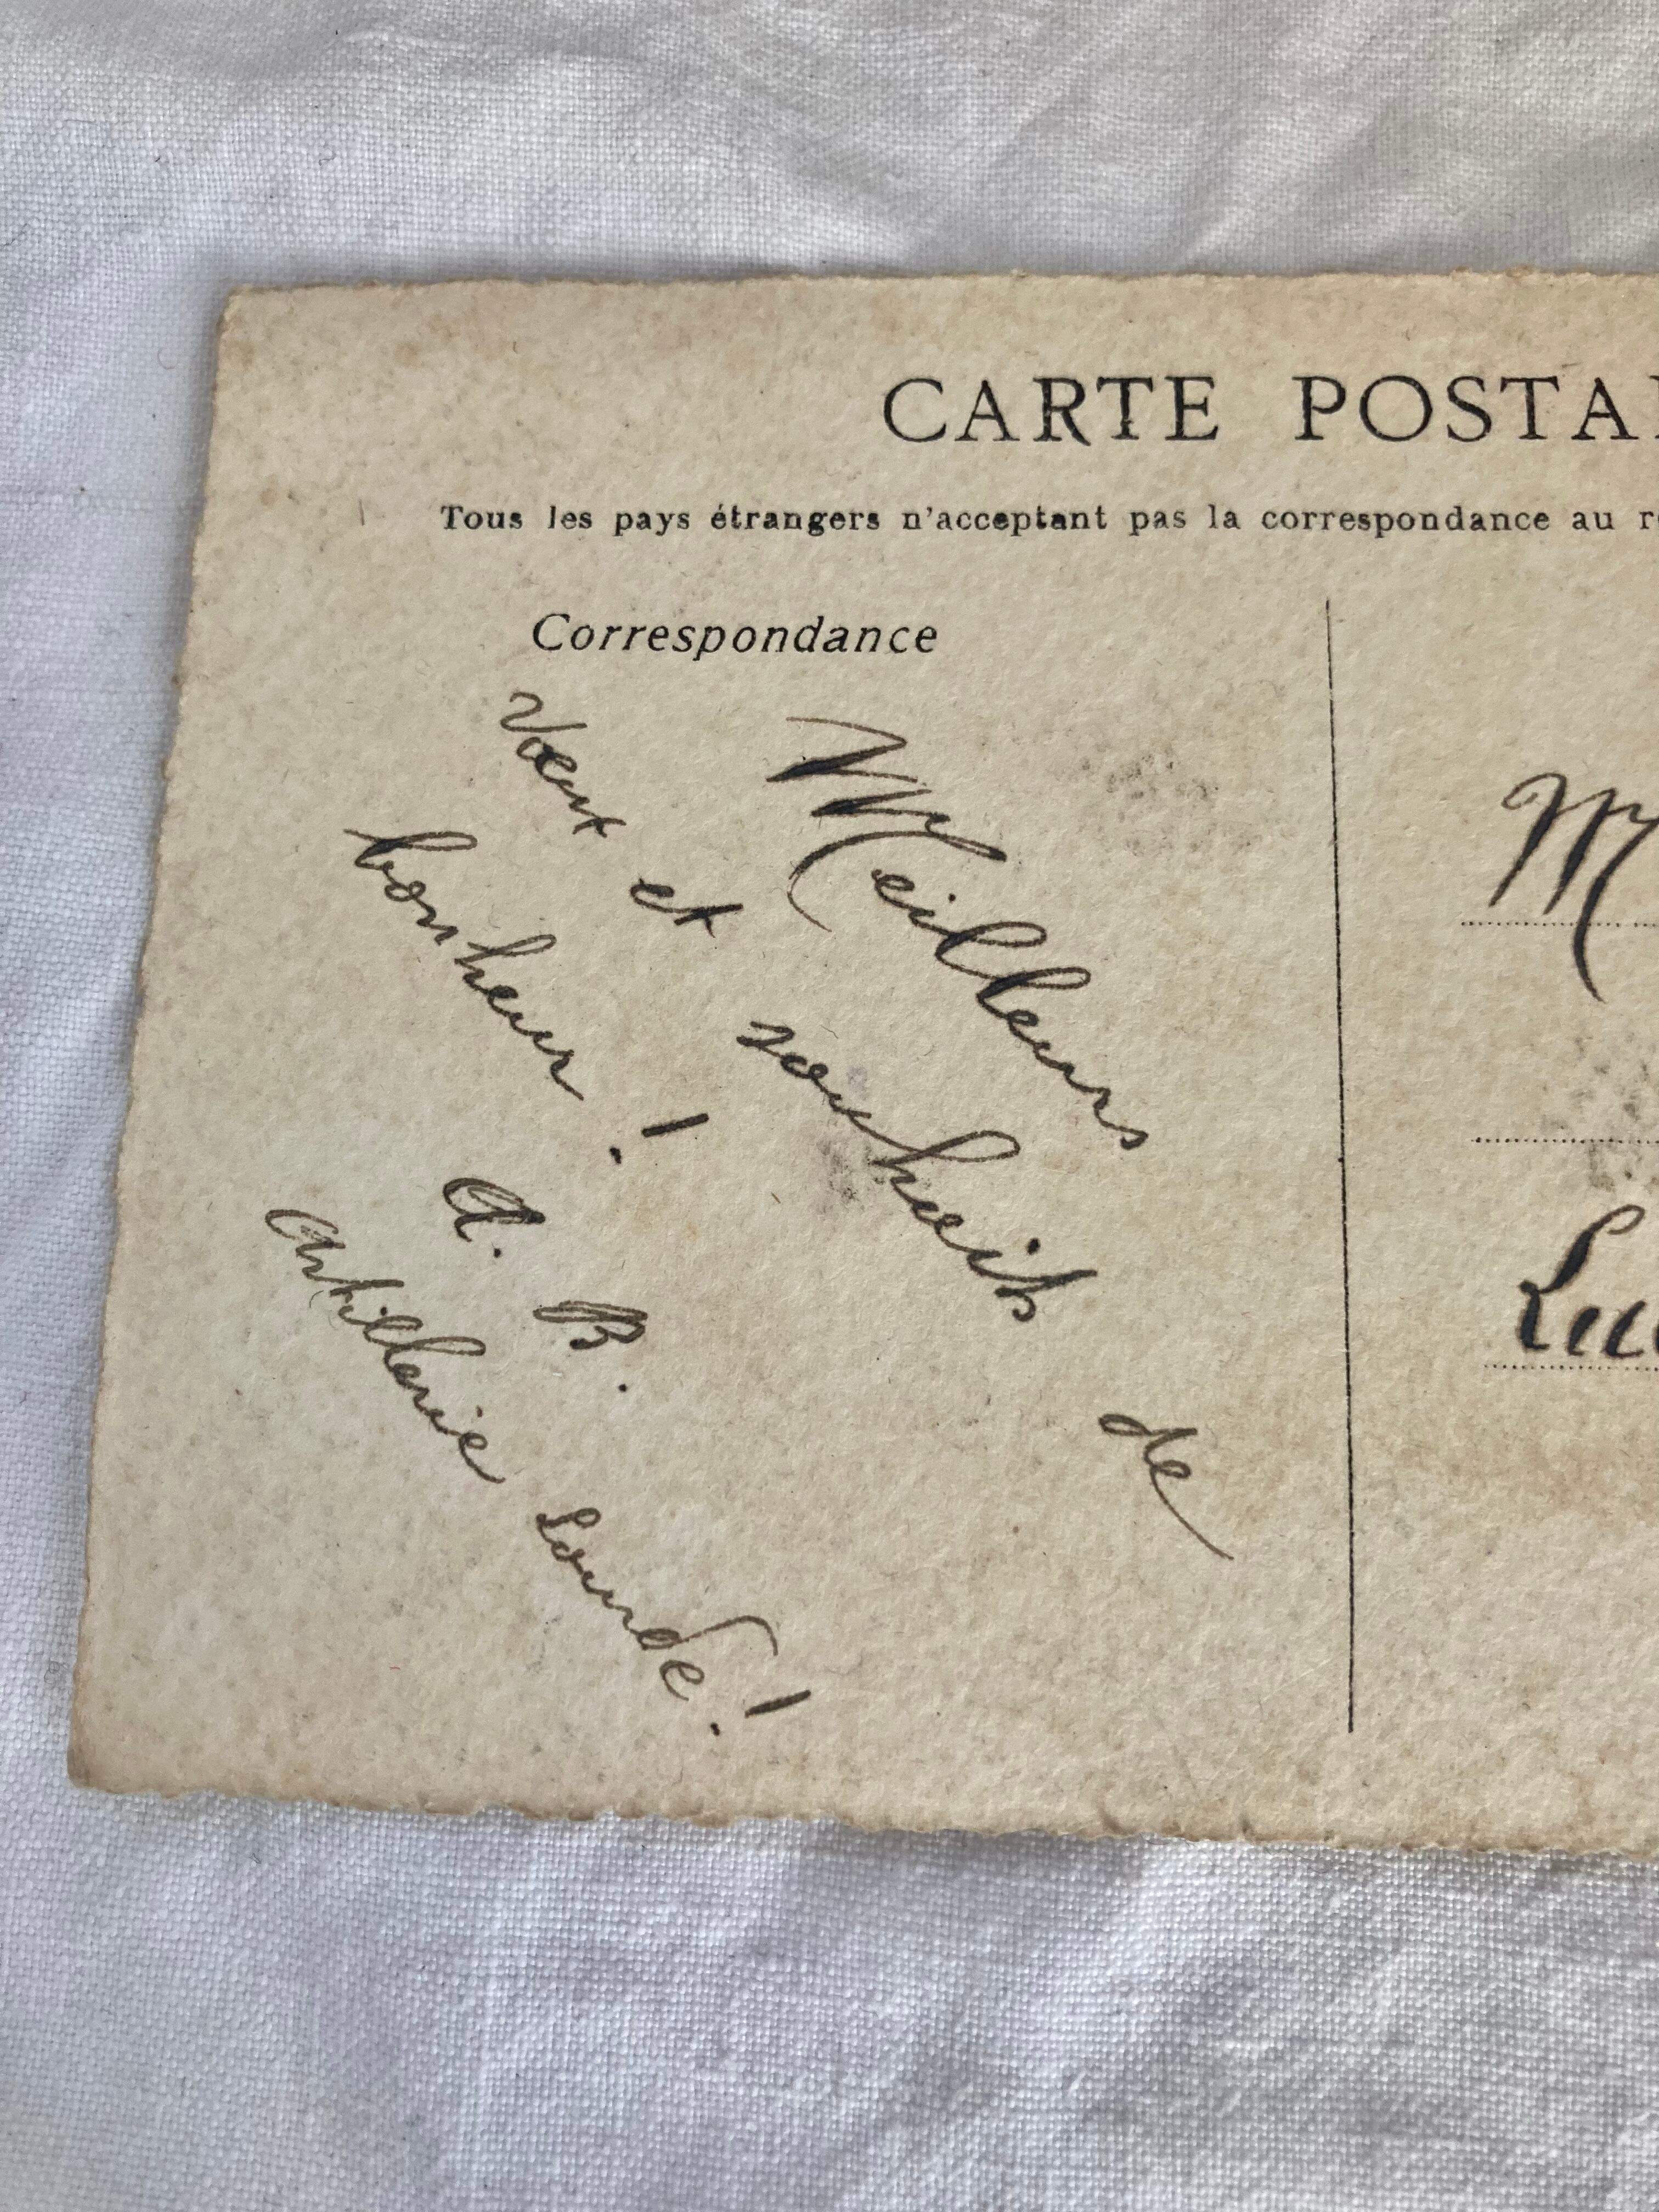 CARTE POSTA
Tous les pays étrangers n'acceptant pas la correspondance au r
Correspondance
Meilleurs
vœux et souhaits de
bonheur !
A. B.
Artillerie Lourde !
M
Luc